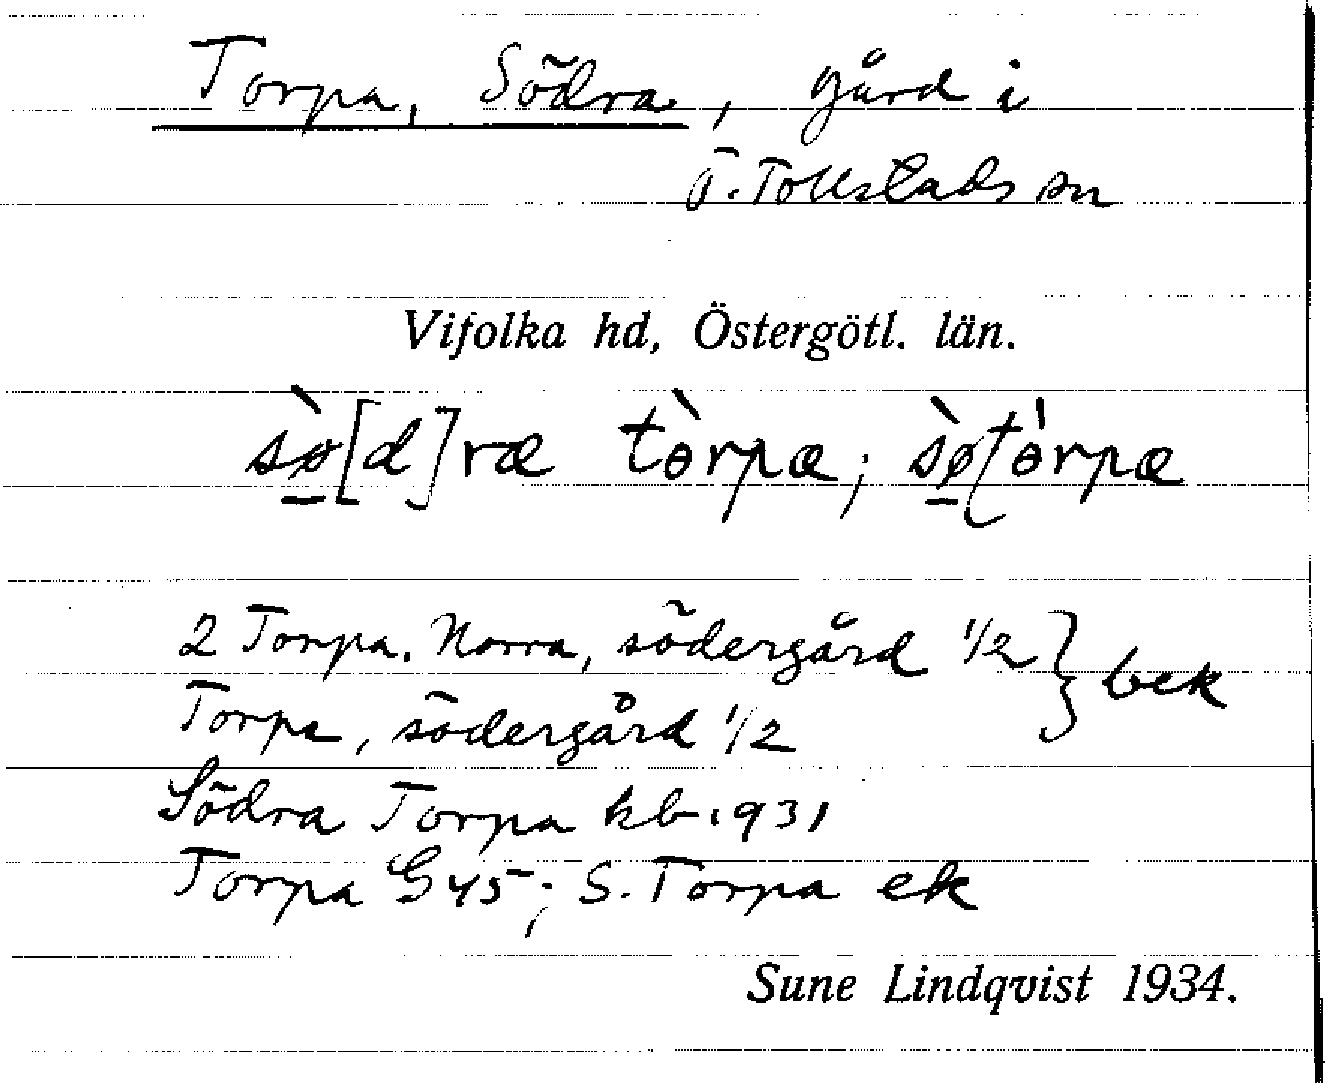 Torpa, Södra, gård i
Ö. Tollstads sn
Vifolka hd, Östergötl. län.
sø̀[d]ræ tòrpæ; sø̀tòrpæ
2 Torpa. Norra, södergård 1/2 } bek
Torpa, södergård 1/2
Södra Torpa kb 1931
Torpa G45; S. Torpa ek
Sune Lindqvist 1934.